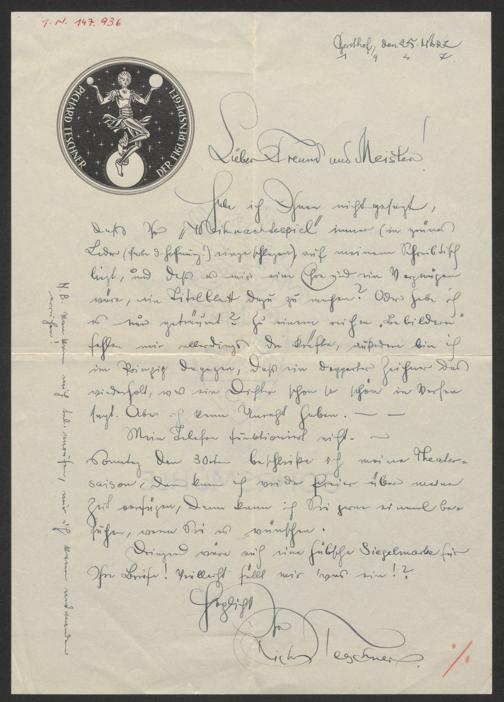 J.N. 147.936
Gersthof, den 25. März
1 9 4 7.
RICHARD TESCHNER DER FIGURENSPIEGEL
Lieber Freund und Meister!
Habe ich Ihnen nicht gesagt,
daß Ihr „Weihnachtsspiel" immer (in grünes
Leder (Farbe d. Hoffnung!) eingeschlagen) auf meinem Schreibtisch
liegt, und daß es mir eine Ehre und ein Vergnügen
wäre, ein Titelblatt dazu zu machen? Oder habe ich
es nur geträumt? Zu einem reichen „Bebildern"
fehlen mir allerdings die Kräfte, außerdem bin ich
im Prinzip dagegen, daß ein depperter Zeichner das
wiederholt, was ein Dichter schon so schön in Versen
sagt. Aber ich kann Unrecht haben. — —
Mein Telefon funktioniert nicht. —
Sonntag den 30ten beschließe ich meine Theater-
saison, dann kann ich wieder freier über meine
Zeit verfügen, dann kann ich Sie gerne einmal be-
suchen, wenn Sie es wünschen.
Dringend wäre auch eine hübsche Siegelmarke für
Ihre Briefe! Vielleicht fällt mir 'was ein!?
Herzlichst
Ihr
Richard Teschner.
N.B. Man kann mich tel. nicht, nur ich kann niemanden
erreichen!